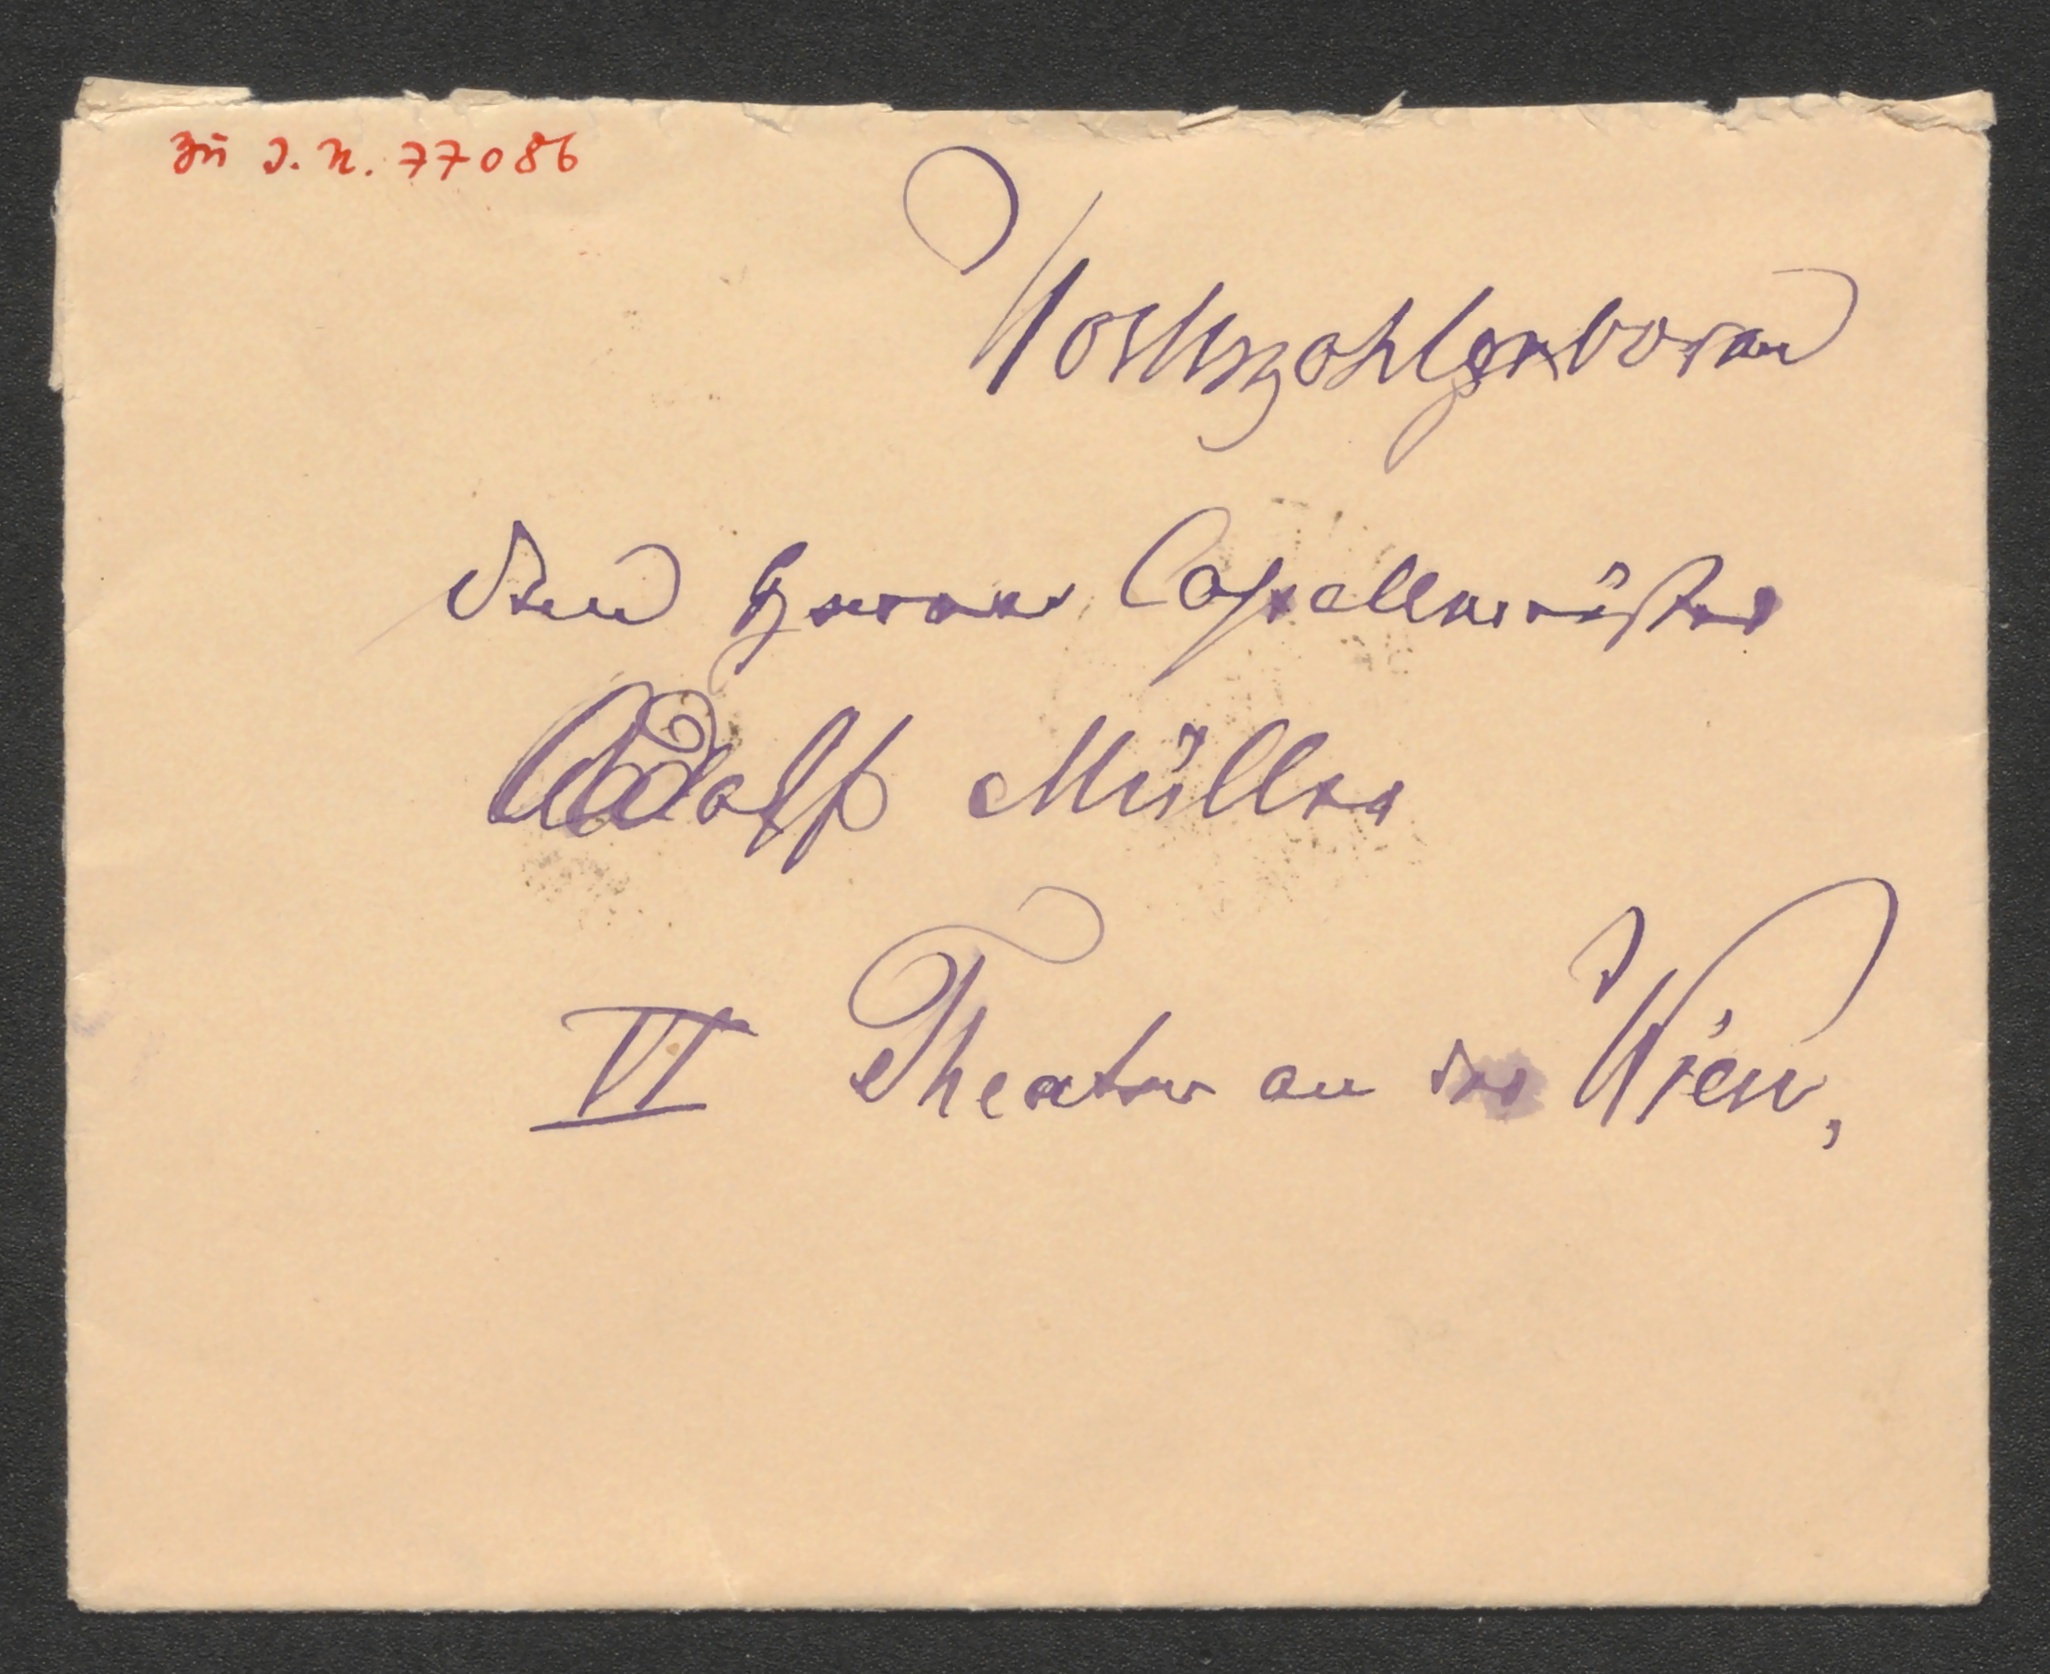 zu J. N. 77086
Hochwohlgeboren
dem Herren Capellmeister
Adolf Müller
VI Theater an der Wien,